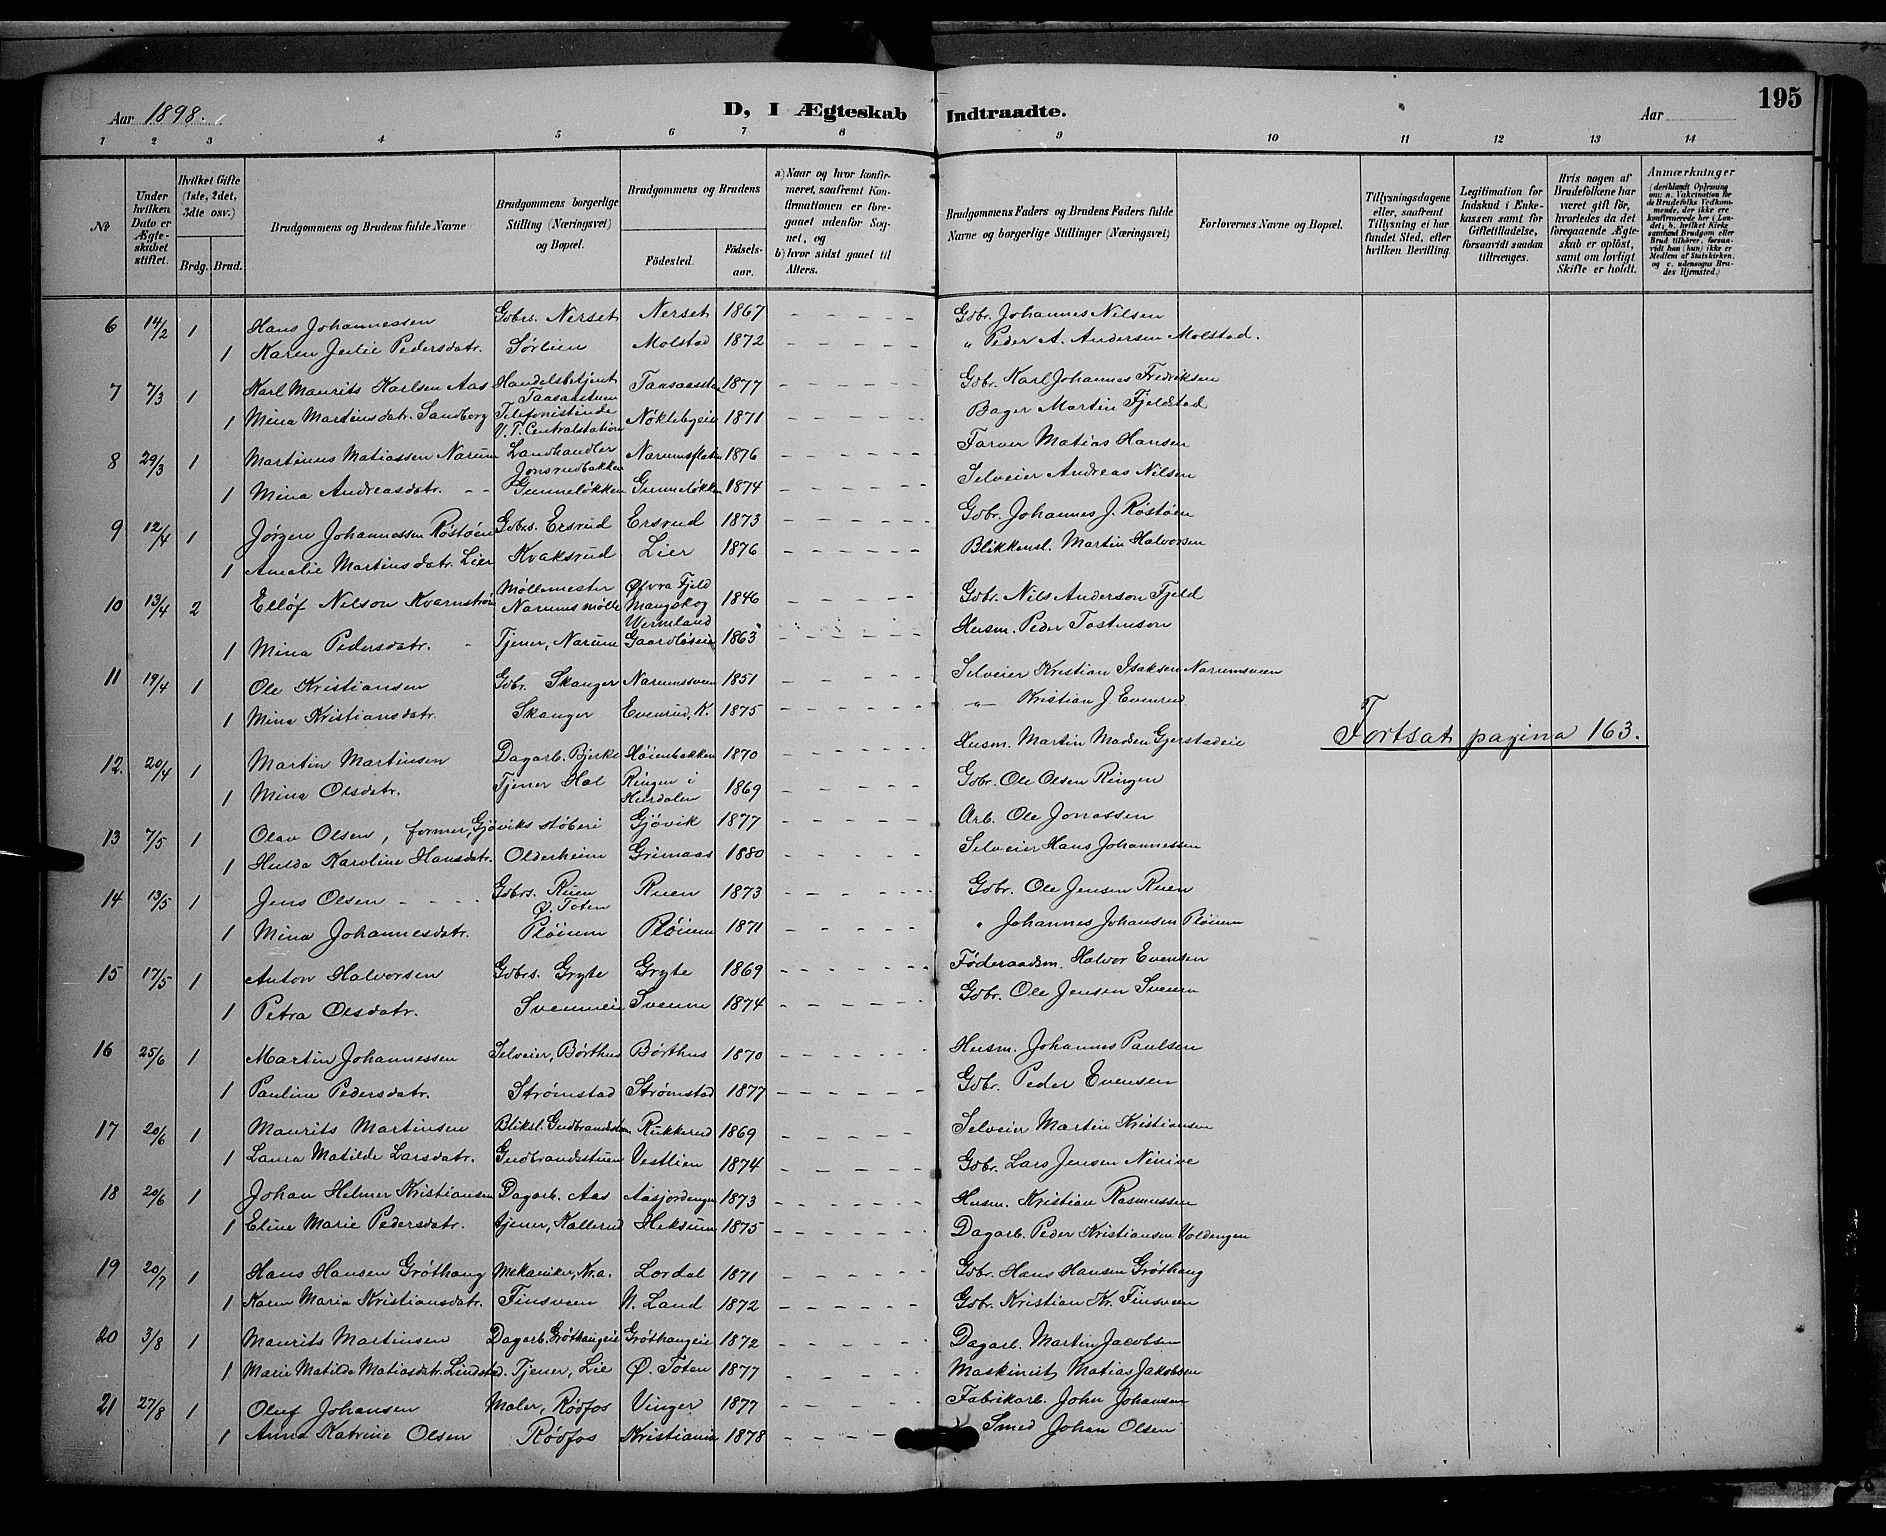 195
Aar 1898. D, I Ægteskab Indtraadte. Aar
1 2 3 4 5 6 7 8 9 10 11 12 13 14
№
Under hvilken Dato er Ægteskabet stiftet.
Hvilket Gifte (1ste, 2det, 3die osv.)
Brdg. Brud.
Brudgommens og Brudens fulde Navne
Brudgommens borgerlige Stilling (Næringsvei) og Bopæl.
Brudgommens og Brudens
Födested. Födselsaar.
a) Naar og hvor konfirmeret, saafremt Konfirmationen er foregaaet udenfor Sognet, og
b) hvor sidst gaaet til Alters.
Brudgommens Faders og Brudens Faders fulde Navne og borgerlige Stillinger (Næringsvei)
Forlovernes Navne og Bopæl.
Tillysningsdagene eller, saafremt Tillysning ei har fundet Sted, efter hvilken Bevilling.
Legitimation for Indskud i Enkekassen samt for Giftetilladelse, forsaavidt saadan tiltrænges.
Hvis nogen af Brudefolkene har været gift för, hvorledes da det foregaaende Ægteskab er oplöst, samt om lovligt Skifte er holdt.
Anmærkninger
(deriblandt Oplysning om: a. Vakcination for de Brudefolks Vedkommende, der ikke ere konfirmerede her i Landet; b. hvilket Kirkesamfund Brudgom eller Brud tilhörer, forsaavidt han (hun) ikke er Medlem af Statskirken, og c. udensogns Brudes Hjemsted.)
6 14/2 1 Hans Johannessen Gdbrs. Nerset Nerset 1867 Gdbr. Johannes Nilsen
1 Karen Julie Pedersdatr. Sørlien Molstad 1872 " Peder A. Andersen Molstad.
7 7/3 1 Karl Maurits Karlsen Aas Handelsbetjent Taasaastuen Taasaastu 1877 Gdbr. Karl Johannes Fredriksen
1 Mina Martinsdatr. Sandborg Telefonistinde V. T. Centralstation Nøklebyeie 1871 Bager Martin Fjeldstad
8 29/3 1 Martinus Matiassen Narum Landhandler Jonsrudbakken Narumsflaten 1876 Farver Matias Hansen
1 Mina Andreasdatr. Gunneløkken Gunneløkken 1874 Selveier Andreas Nilsen
9 12/4 1 Jørgen Johannessen Røstøen Gdbrs. Ersrud Ersrud 1873 Gdbr. Johannes J. Røstøen
1 Amalie Martinsdatr. Lier Kvaksrud Lier 1876 Blikkensl. Martin Halvorsen
10 13/4 2 Elløf Nilson Kvarnströ Møllemester Narums mølle Øfvra Fjeld Mangskog Wermland 1846 Gdbr. Nils Anderson Fjeld
1 Mina Pedersdatr. Tjener, Narum Gaardløseie 1863 Husm. Peder Tostenson
11 19/4 1 Ole Kristiansen Gdbr. Skanger Narumsveen 1851 Selveier Kristian Isaksen Narumsveen
1 Mina Kristiansdatr. Skanger Evenrud, K. 1875 " Kristian J. Evenrud
Fortsat pagina 163.
12. 20/4 1 Martin Martinsen Dagarb. Bjerke Høienbakken 1870 Husm. Martin Madsen Gjerstadeie
1 Mina Olsdatr. Tjener Hol Ringen i Hurdalen 1869 Gdbr. Ole Olsen Ringen
13 7/5 1 Olav Olsen, former, Gjøviks støberi Gjøvik 1877 Arb. Ole Jonassen
1 Hulda Karoline Hansdatr. Olderheim Grimaas 1880 Selveier Hans Johannessen
14 13/5 1 Jens Olsen Gdbrs. Ruen Ø. Toten Ruen 1873 Gdbr. Ole Jensen Ruen
1 Mina Johannesdatr. Pløium Pløium 1871 " Johannes Johansen Pløium
15 17/5 1 Anton Halvorsen Gdbrs. Gryte Gryte 1869 Føderaadsm. Halvor Evensen
1 Petra Olsdatr. Svennneie Sveum 1874 Gdbr. Ole Jensen Sveum
16 25/6 1 Martin Johannessen Selveier, Børthus Børthus 1870 Husm. Johannes Paulsen
1 Pauline Pedersdatr. Strømstad Strømstad 1877 Gdbr. Peder Evensen
17 20/6 1 Maurits Martinsen Bliksl. Gudbrandstuen Rukkerud 1869 Selveier Martin Kristiansen
1 Laura Matilde Larsdatr. Gudbrandsstuen Vestlien 1874 Gdbr. Lars Jensen Ninive
18 20/6 1 Johan Helmer Kristiansen Dagarb. Aas Aasjordengen 1873 Husm. Kristian Rasmussen
1 Eline Marie Pedersdatr. tjener, Kallerud Heksum 1875 Dagarb. Peder Kristiansen Voldengen
19 20/7 1 Hans Hansen Grøthaug Mekaniker, Kr.a. Lordal 1871 Gdbr. Hans Hansen Grøthaug
1 Karen Maria Kristiansdatr. Finsveen N. Land 1872 Gdbr. Kristian Kr. Finsveen
20 3/8 1 Maurits Martinsen Dagarb. Grøthaugeie Grøthaugeie 1872 Dagarb. Martin Jacobsen
1 Marie Matilde Matiasdatr. Lindstad. Tjener, Lie Ø. Toten 1877 Maskinist Matias Jakobsen
21 27/8 1 Oluf Johansen Maler, Rødfos Vinger 1877 Fabrikarb. John Johansen
1 Anna Katrine Olsen Rødfos Kristiania 1878 Smed Johan Olsen